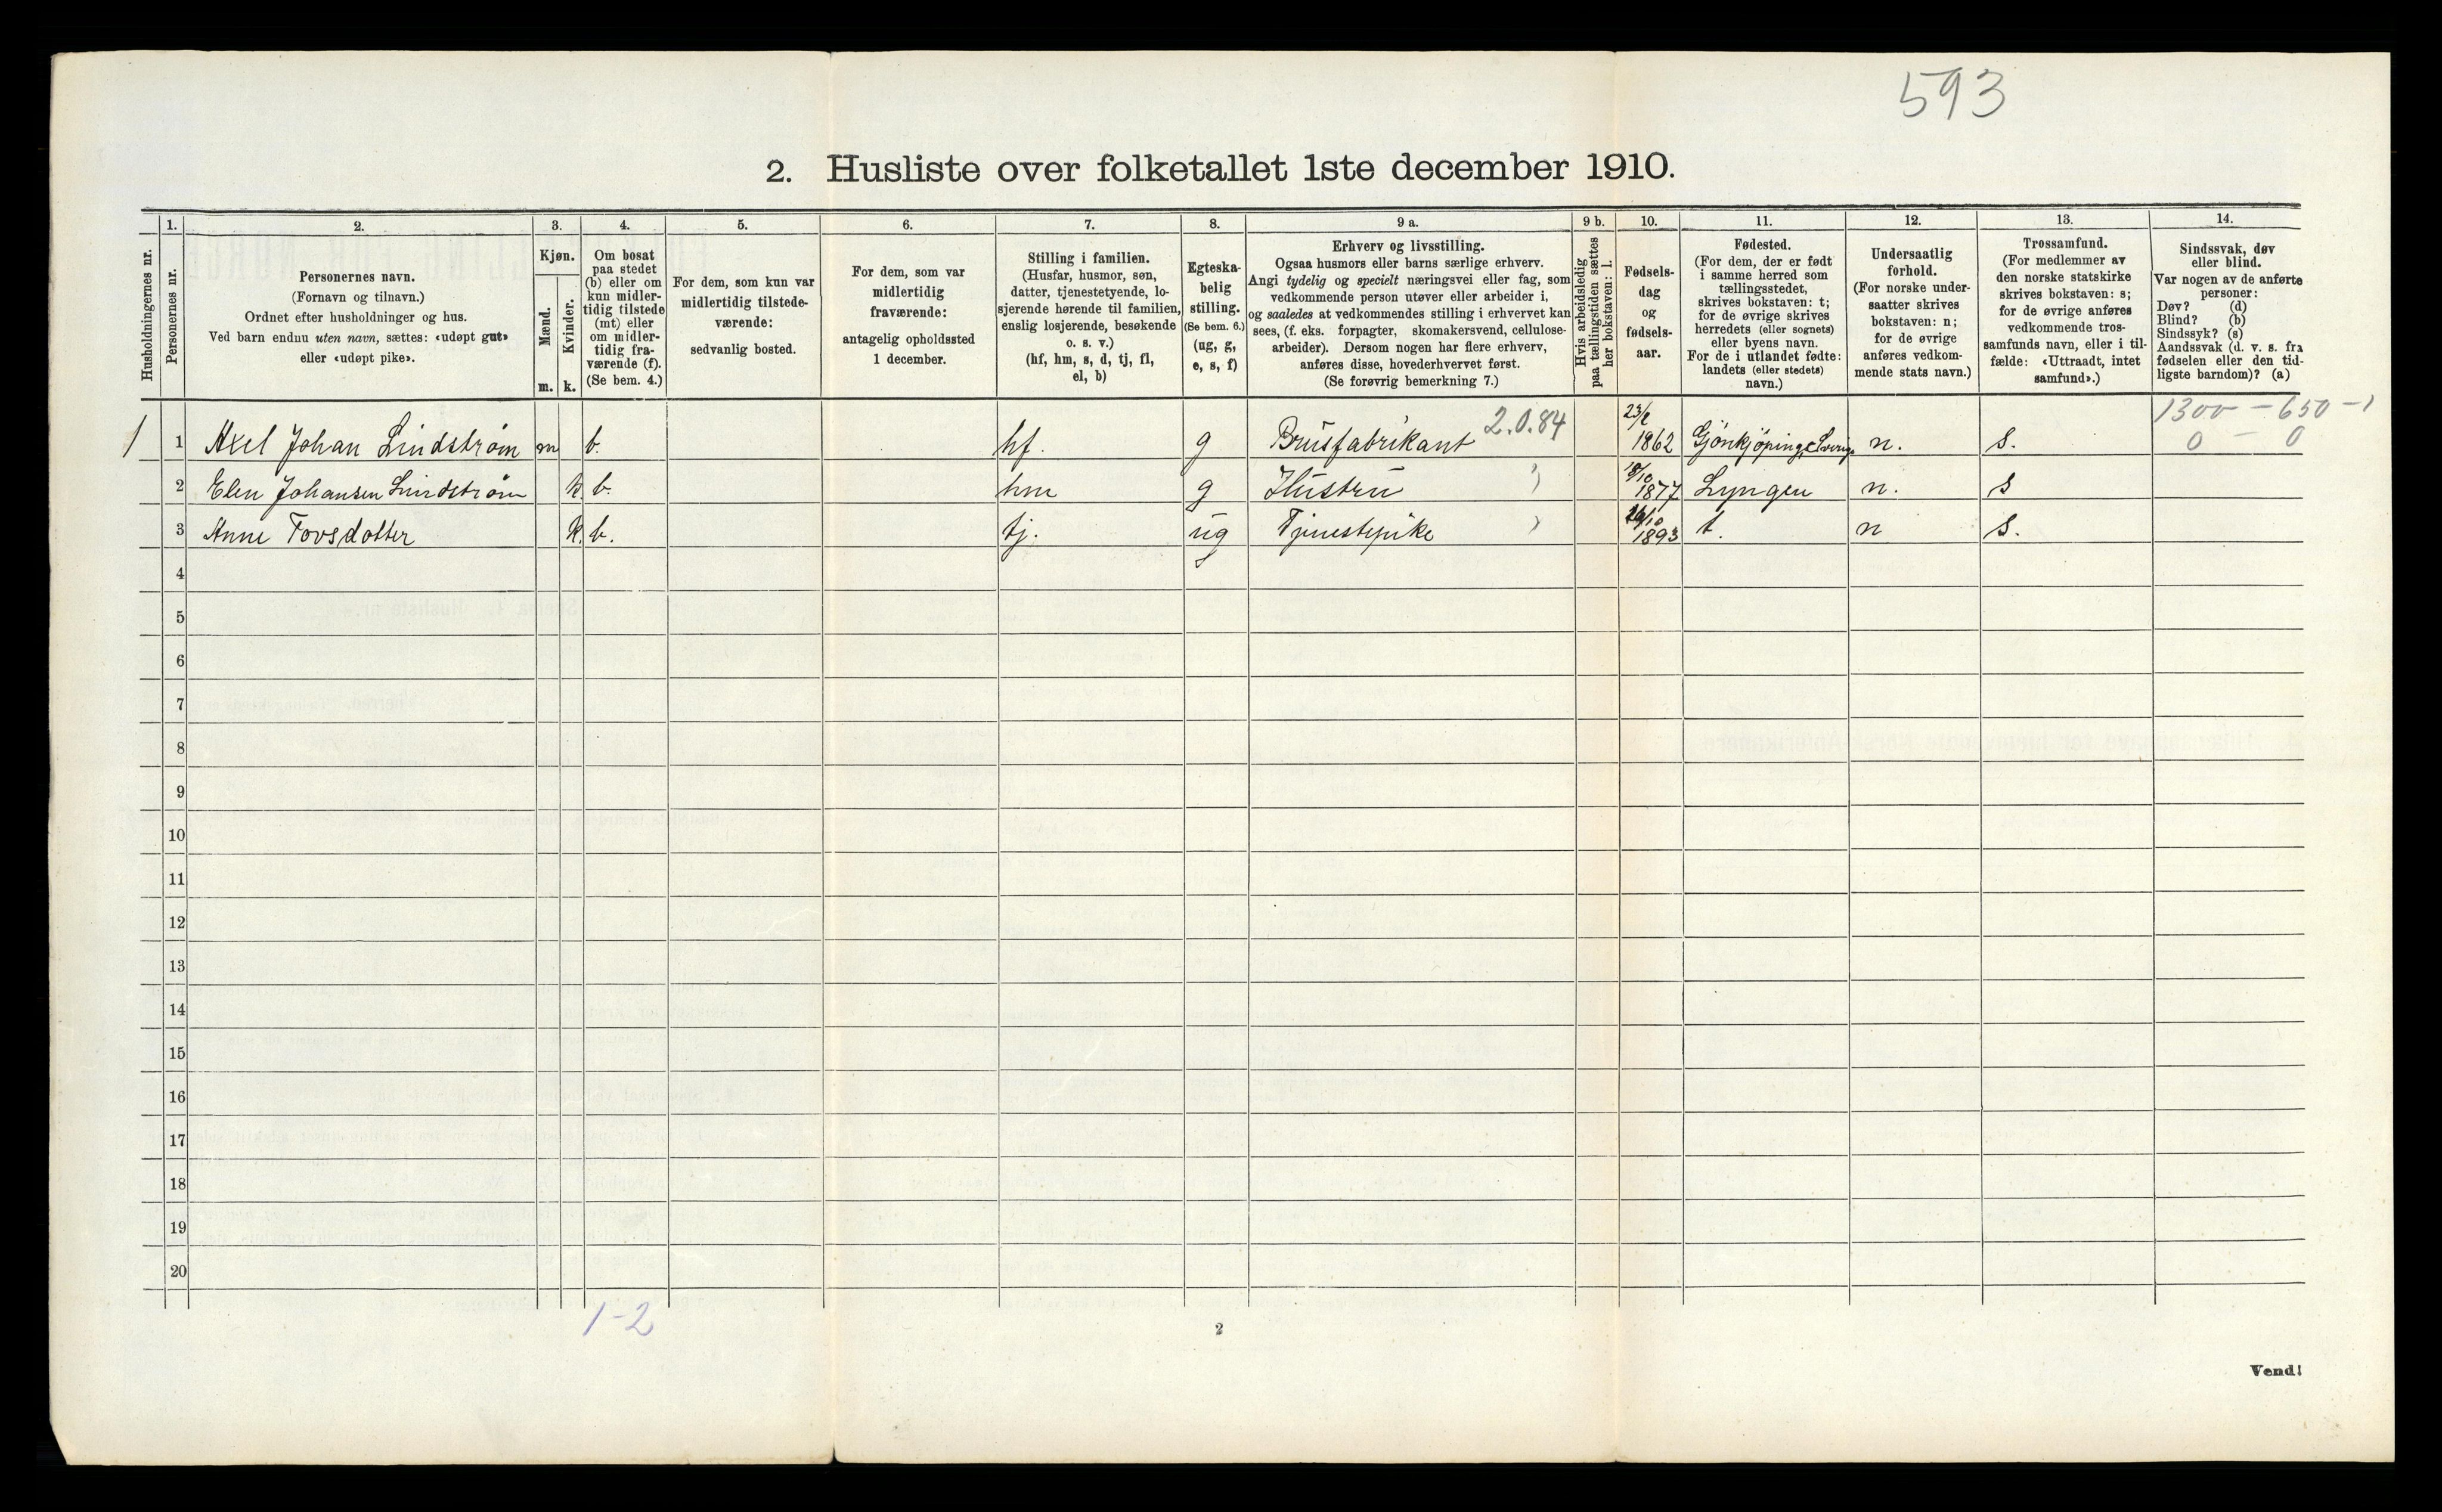 593
2. Husliste over folketallet 1ste december 1910.
Husholdningernes nr.
1.
Personernes nr.
2.
Personernes navn.
(Fornavn og tilnavn.)
Ordnet efter husholdninger og hus.
Ved barn endnu uten navn, sættes: «udøpt gut»
eller «udøpt pike».
3.
Kjøn.
Mænd.
Kvinder.
m. k.
4.
Om bosat
paa stedet
(b) eller om
kun midler-
tidig tilstede
(mt) eller
om midler-
tidig fra-
værende (f).
(Se bem. 4.)
5.
For dem, som kun var
midlertidig tilstede-
værende:
sedvanlig bosted.
6.
For dem, som var
midlertidig
fraværende:
antagelig opholdssted
1 december.
7.
Stilling i familien.
(Husfar, husmor, søn,
datter, tjenestetyende, lo-
sjerende hørende til familien,
enslig losjerende, besøkende
o. s. v.)
(hf, hm, s, d, tj, fl,
el, b)
8.
Egteska-
belig
stilling.
(Se bem. 6.)
(ug, g,
e, s, f)
9 a.
Erhverv og livsstilling.
Ogsaa husmors eller barns særlige erhverv.
Angi tydelig og specielt næringsvei eller fag, som
vedkommende person utøver eller arbeider i,
og saaledes at vedkommendes stilling i erhvervet kan
sees, (f. eks. forpagter, skomakersvend, cellulose-
arbeider). Dersom nogen har flere erhverv,
anføres disse, hovederhvervet først.
(Se forøvrig bemerkning 7.)
9 b.
Hvis arbeidsledig
paa tællingstiden sættes
her bokstaven: l.
10.
Fødsels-
dag
og
fødsels-
aar.
11.
Fødested.
(For dem, der er født
i samme herred som
tællingsstedet,
skrives bokstaven: t;
for de øvrige skrives
herredets (eller sognets)
eller byens navn.
For de i utlandet fødte:
landets (eller stedets)
navn.)
12.
Undersaatlig
forhold.
(For norske under-
saatter skrives
bokstaven: n;
for de øvrige
anføres vedkom-
mende stats navn.)
13.
Trossamfund.
(For medlemmer av
den norske statskirke
skrives bokstaven: s;
for de øvrige anføres
vedkommende tros-
samfunds navn, eller i til-
fælde: «Uttraadt, intet
samfund».)
14.
Sindssvak, døv
eller blind.
Var nogen av de anførte
personer:
Døv? (d)
Blind? (b)
Sindssyk? (s)
Aandssvak (d. v. s. fra
fødselen eller den tid-
ligste barndom)? (a)
1300 - 650 - 1
1 1 Axel Johan Lindstrøm m b. hf. g Brusfabrikant 2.0.84 1862 Gjönkjöping, n. s. 0 - 0
2 Elen Johansen Lindstrøm k. b. hm g Hustru 18/10 1877 Lyngen n. s
3 Anne Tovsdotter k. b. tj. ug Tjenestepike 26/10 1893 t. n s.
4
5
6
7
8
9
10
11
12
13
14
15
16
17
18
19
20
1-2
2
Vend!